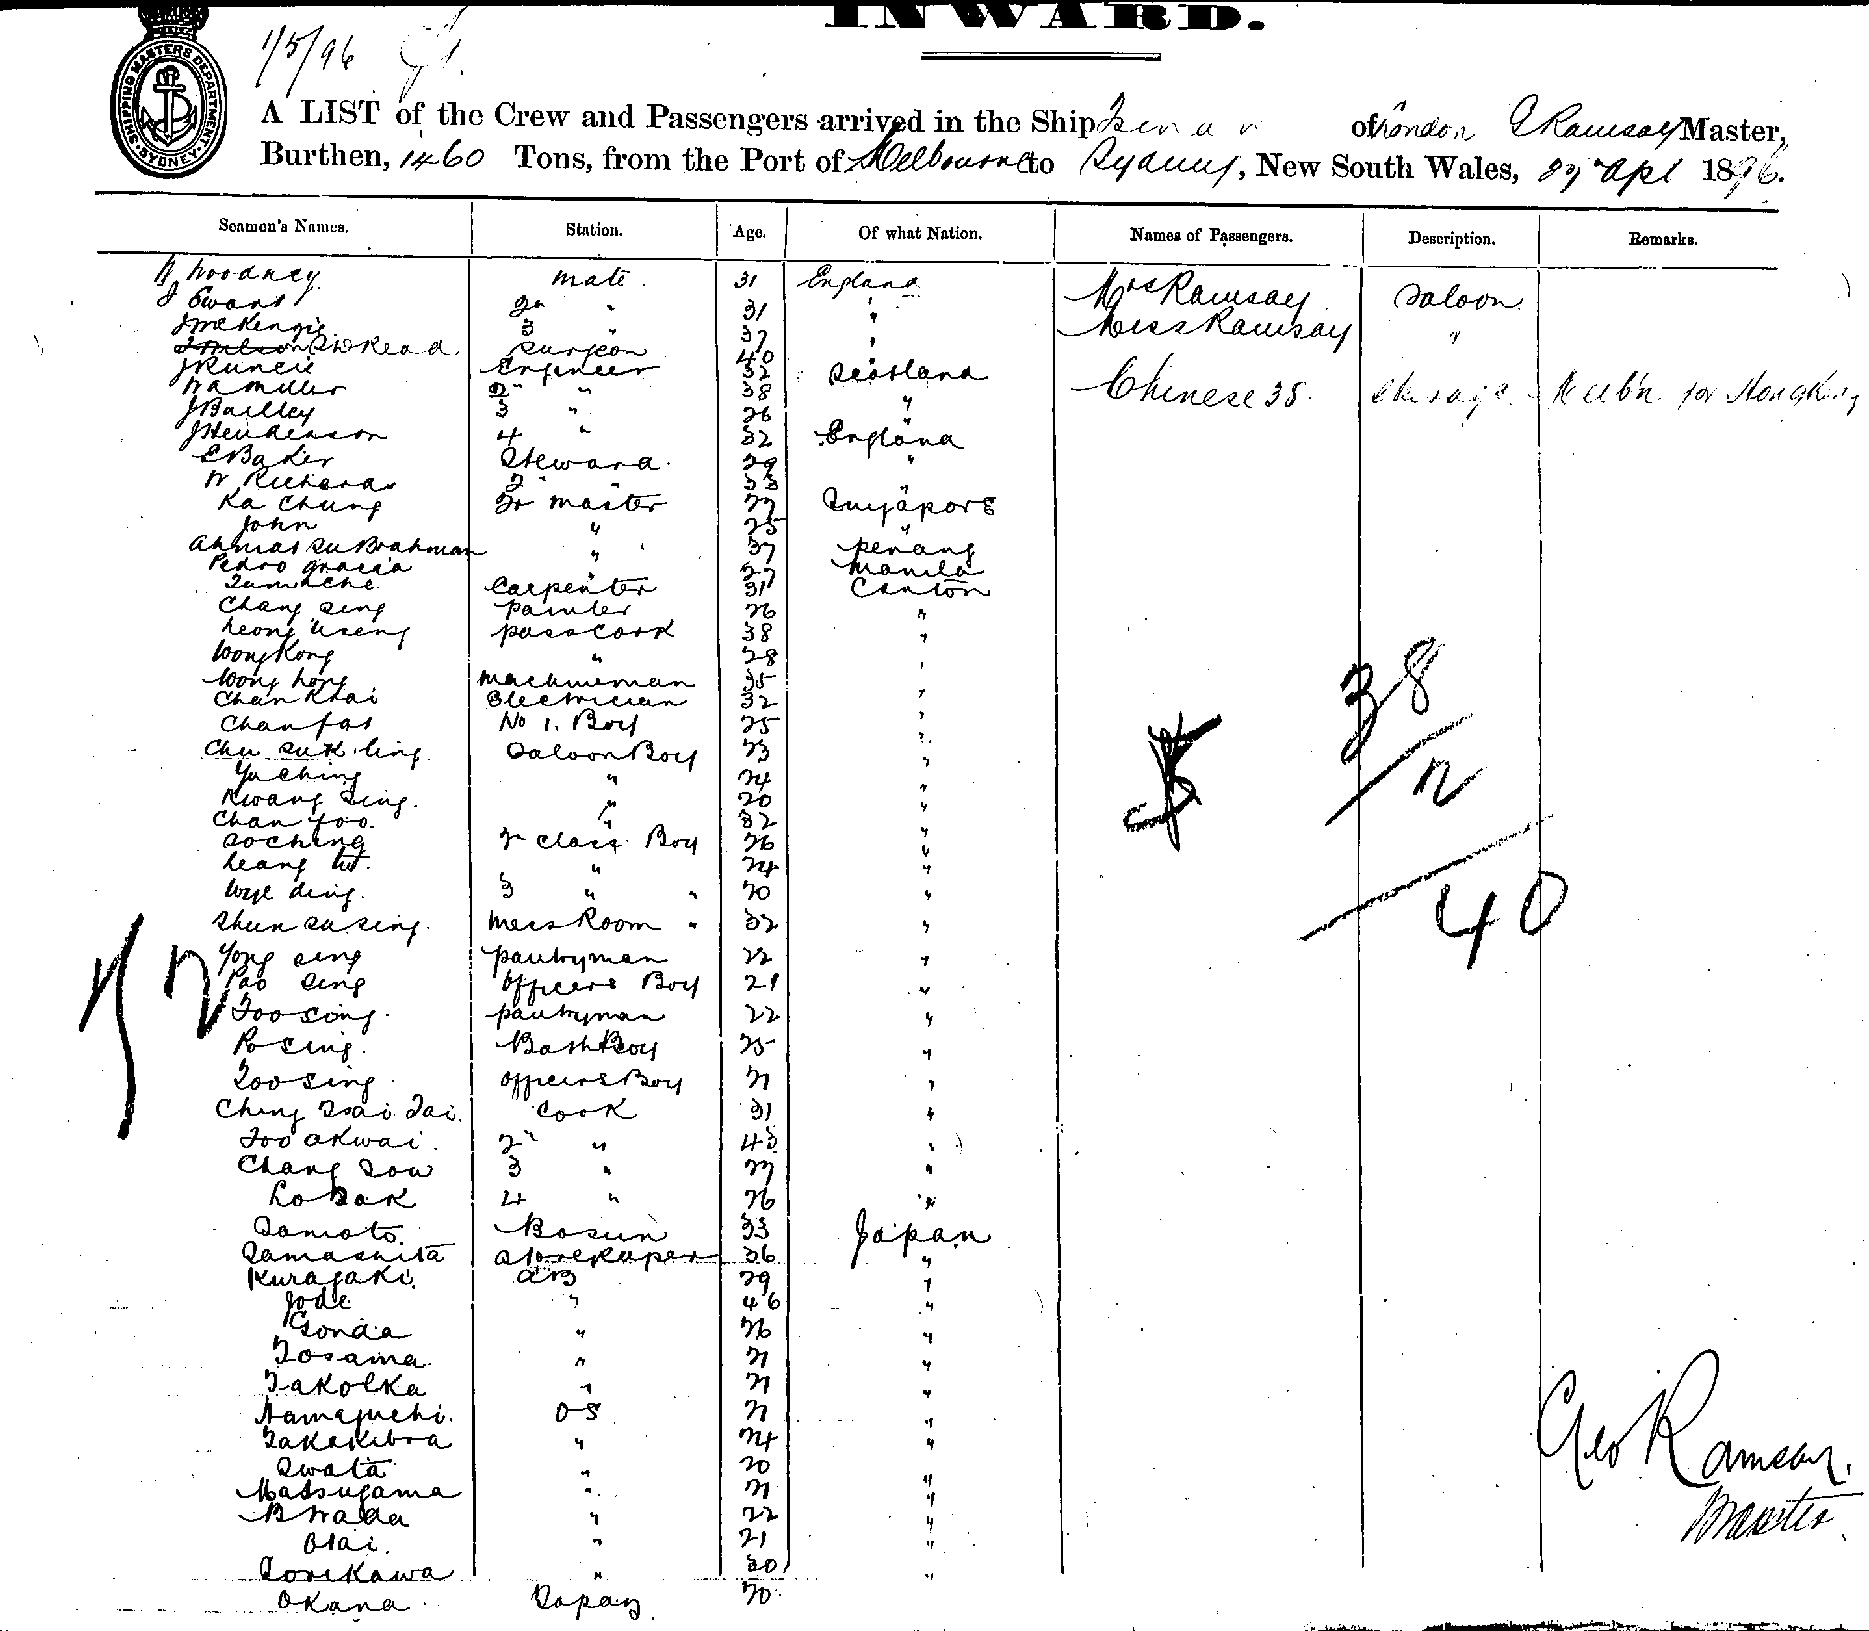 INWARD.
1/5/96
SHIPPING MASTERS DEPARTMENT SYDNEY
A LIST of the Crew and Passengers arrived in the Ship of London G Ramsay Master,
Burthen, 1460 Tons, from the Port of Melbourne to Sydney, New South Wales, Apl 1896.
Seamen's Names. Station. Age. Of what Nation. Names of Passengers. Description. Remarks.
mate. 31 England Mrs Ramsay Saloon
J Ewart 2nd " 31 " Miss Ramsay "
J McKenzie 3 " 37 "
Surgeon 40 "
J Runcie Engineer 32 Scotland
W A Miller 2 " 38 " Chinese 38. Steerage Melb'n for Hong Kong
J Bailley 3 " 26 "
J Henderson 4 " 32 England
E Baker Steward 29 "
W Richards 2 " 33 "
Ka Chung Qr master 27 Singapore
John " 25 "
" 37 Penang
Pedro Gracia " 27 Manila
Carpenter 31 Canton
Chang Sing Painter 26 "
Leong Useng pass Cook 38 "
Wong Kong " 28 "
Wong Long Machineman 35 "
Chan Khai Electrician 32 "
Chan fat No 1. Boy 25 "
Chu Suk Ling Saloon Boy 23 "
Yu Ching " 24 "
Kwang Sing. " 20 "
Chan Foo. " 32 "
So Ching 2 class Boy 26 "
Leang " 24 "
3 " " 20 "
Shun Su Sing. Mess Room " 32 "
Yong Sing pantryman 22 "
Pao Sing Officers Boy 21 "
Foo Song. pantryman 22 "
Po Sing. Bath Boy 25 "
Zoo Sing Officers Boy 21 "
Ching Tsai Tai. Cook 31 "
Foo Akwai. 2 " 43 "
Chang Sow 3 " 27 "
4 " 26 "
Samoto. Bosun 33 Japan
Yamashita Storekeeper 36 "
Kuragaki. AB 29 "
Jode " 46 "
Gonda " 26 "
Tosama. " 21 "
Takolka " 21 "
Hamaguchi. O S 21 "
" 24 "
Iwata " 20 "
Matsugama " 21 "
" 22 "
Otai. " 21 "
Sorikawa " 30 "
Okana. 20
38
2
40
52
Geo Ramsay.
Master.